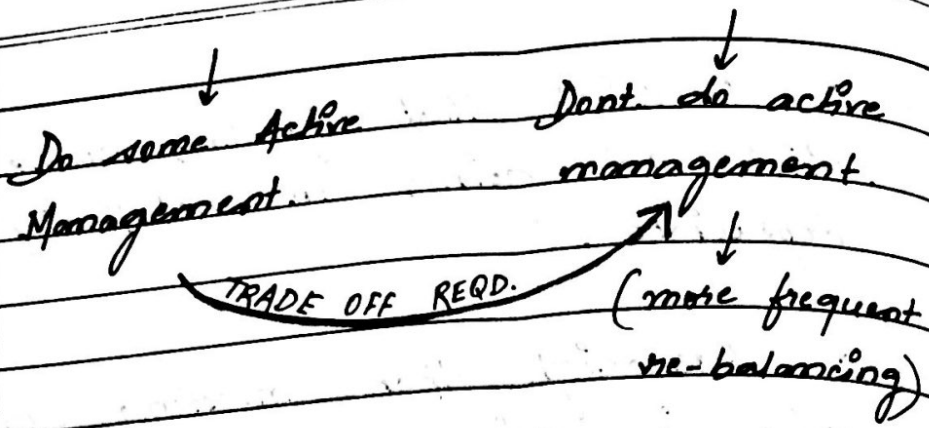 Do some Active
Management.
Dont do active
management.
TRADE OFF REQD.
(more frequent
re-balancing)